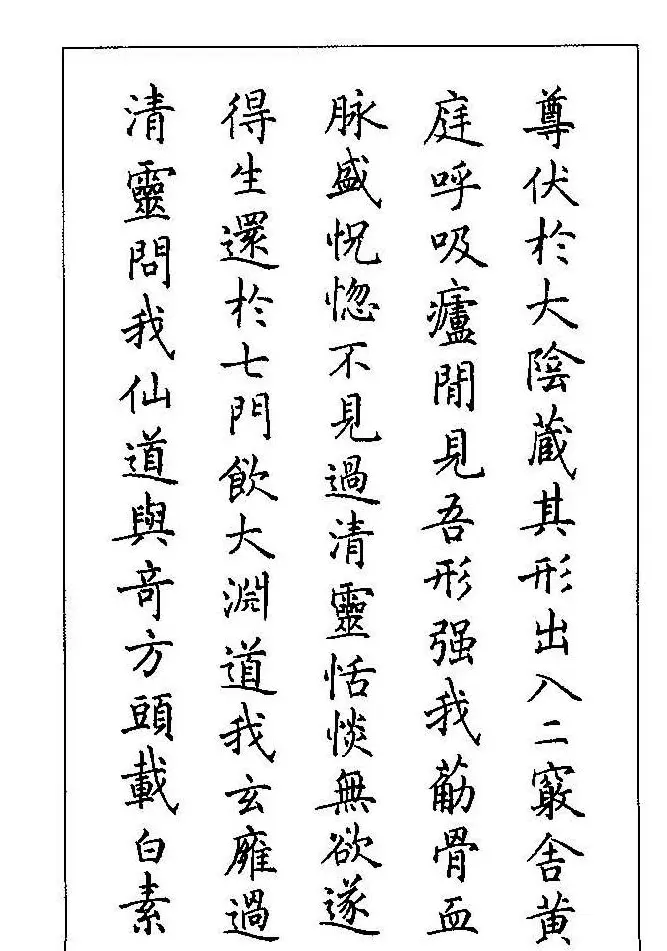 尊伏於大陰藏其形出入二竅舍黄
庭呼吸廬間見吾形强我筋骨血
脉盛怳惚不見過清靈恬惔無欲遂
得生還於七門飲大淵道我玄廱過
清靈問我仙道與奇方頭載白素